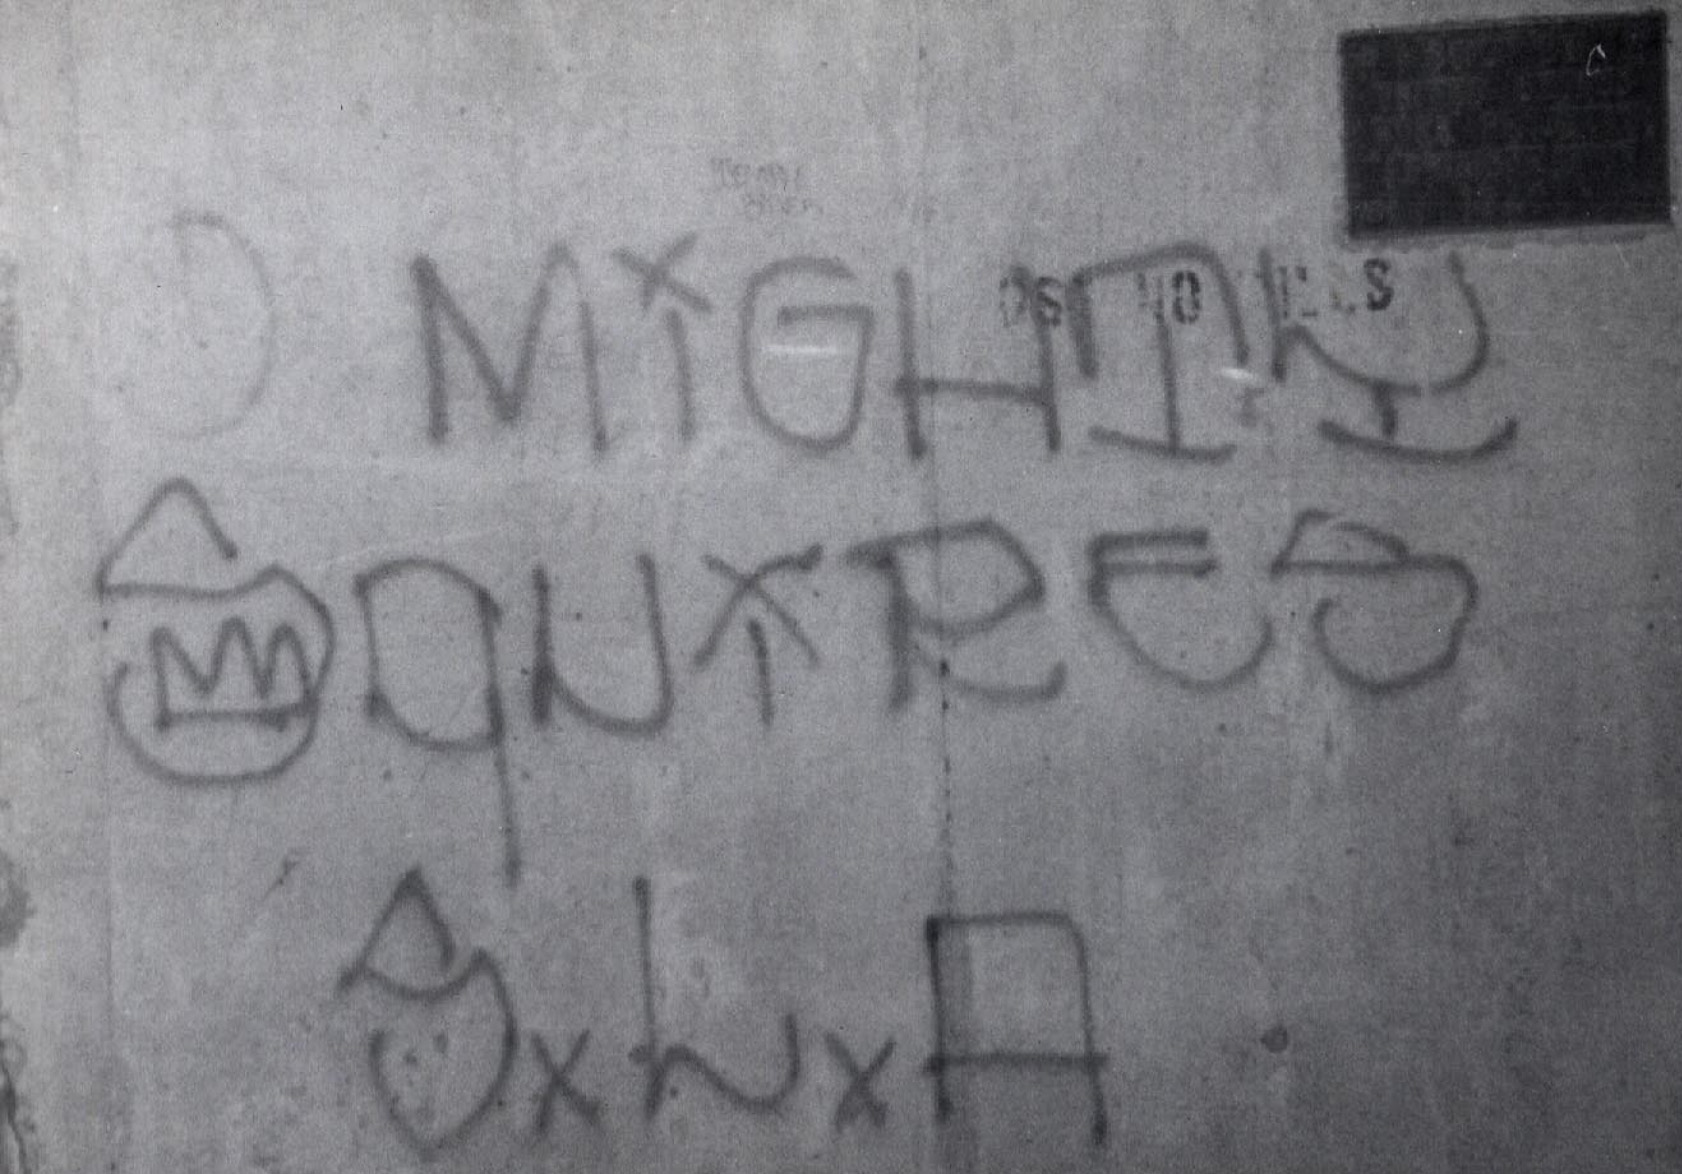 MiGHTY
SQUiRES
SxLxA